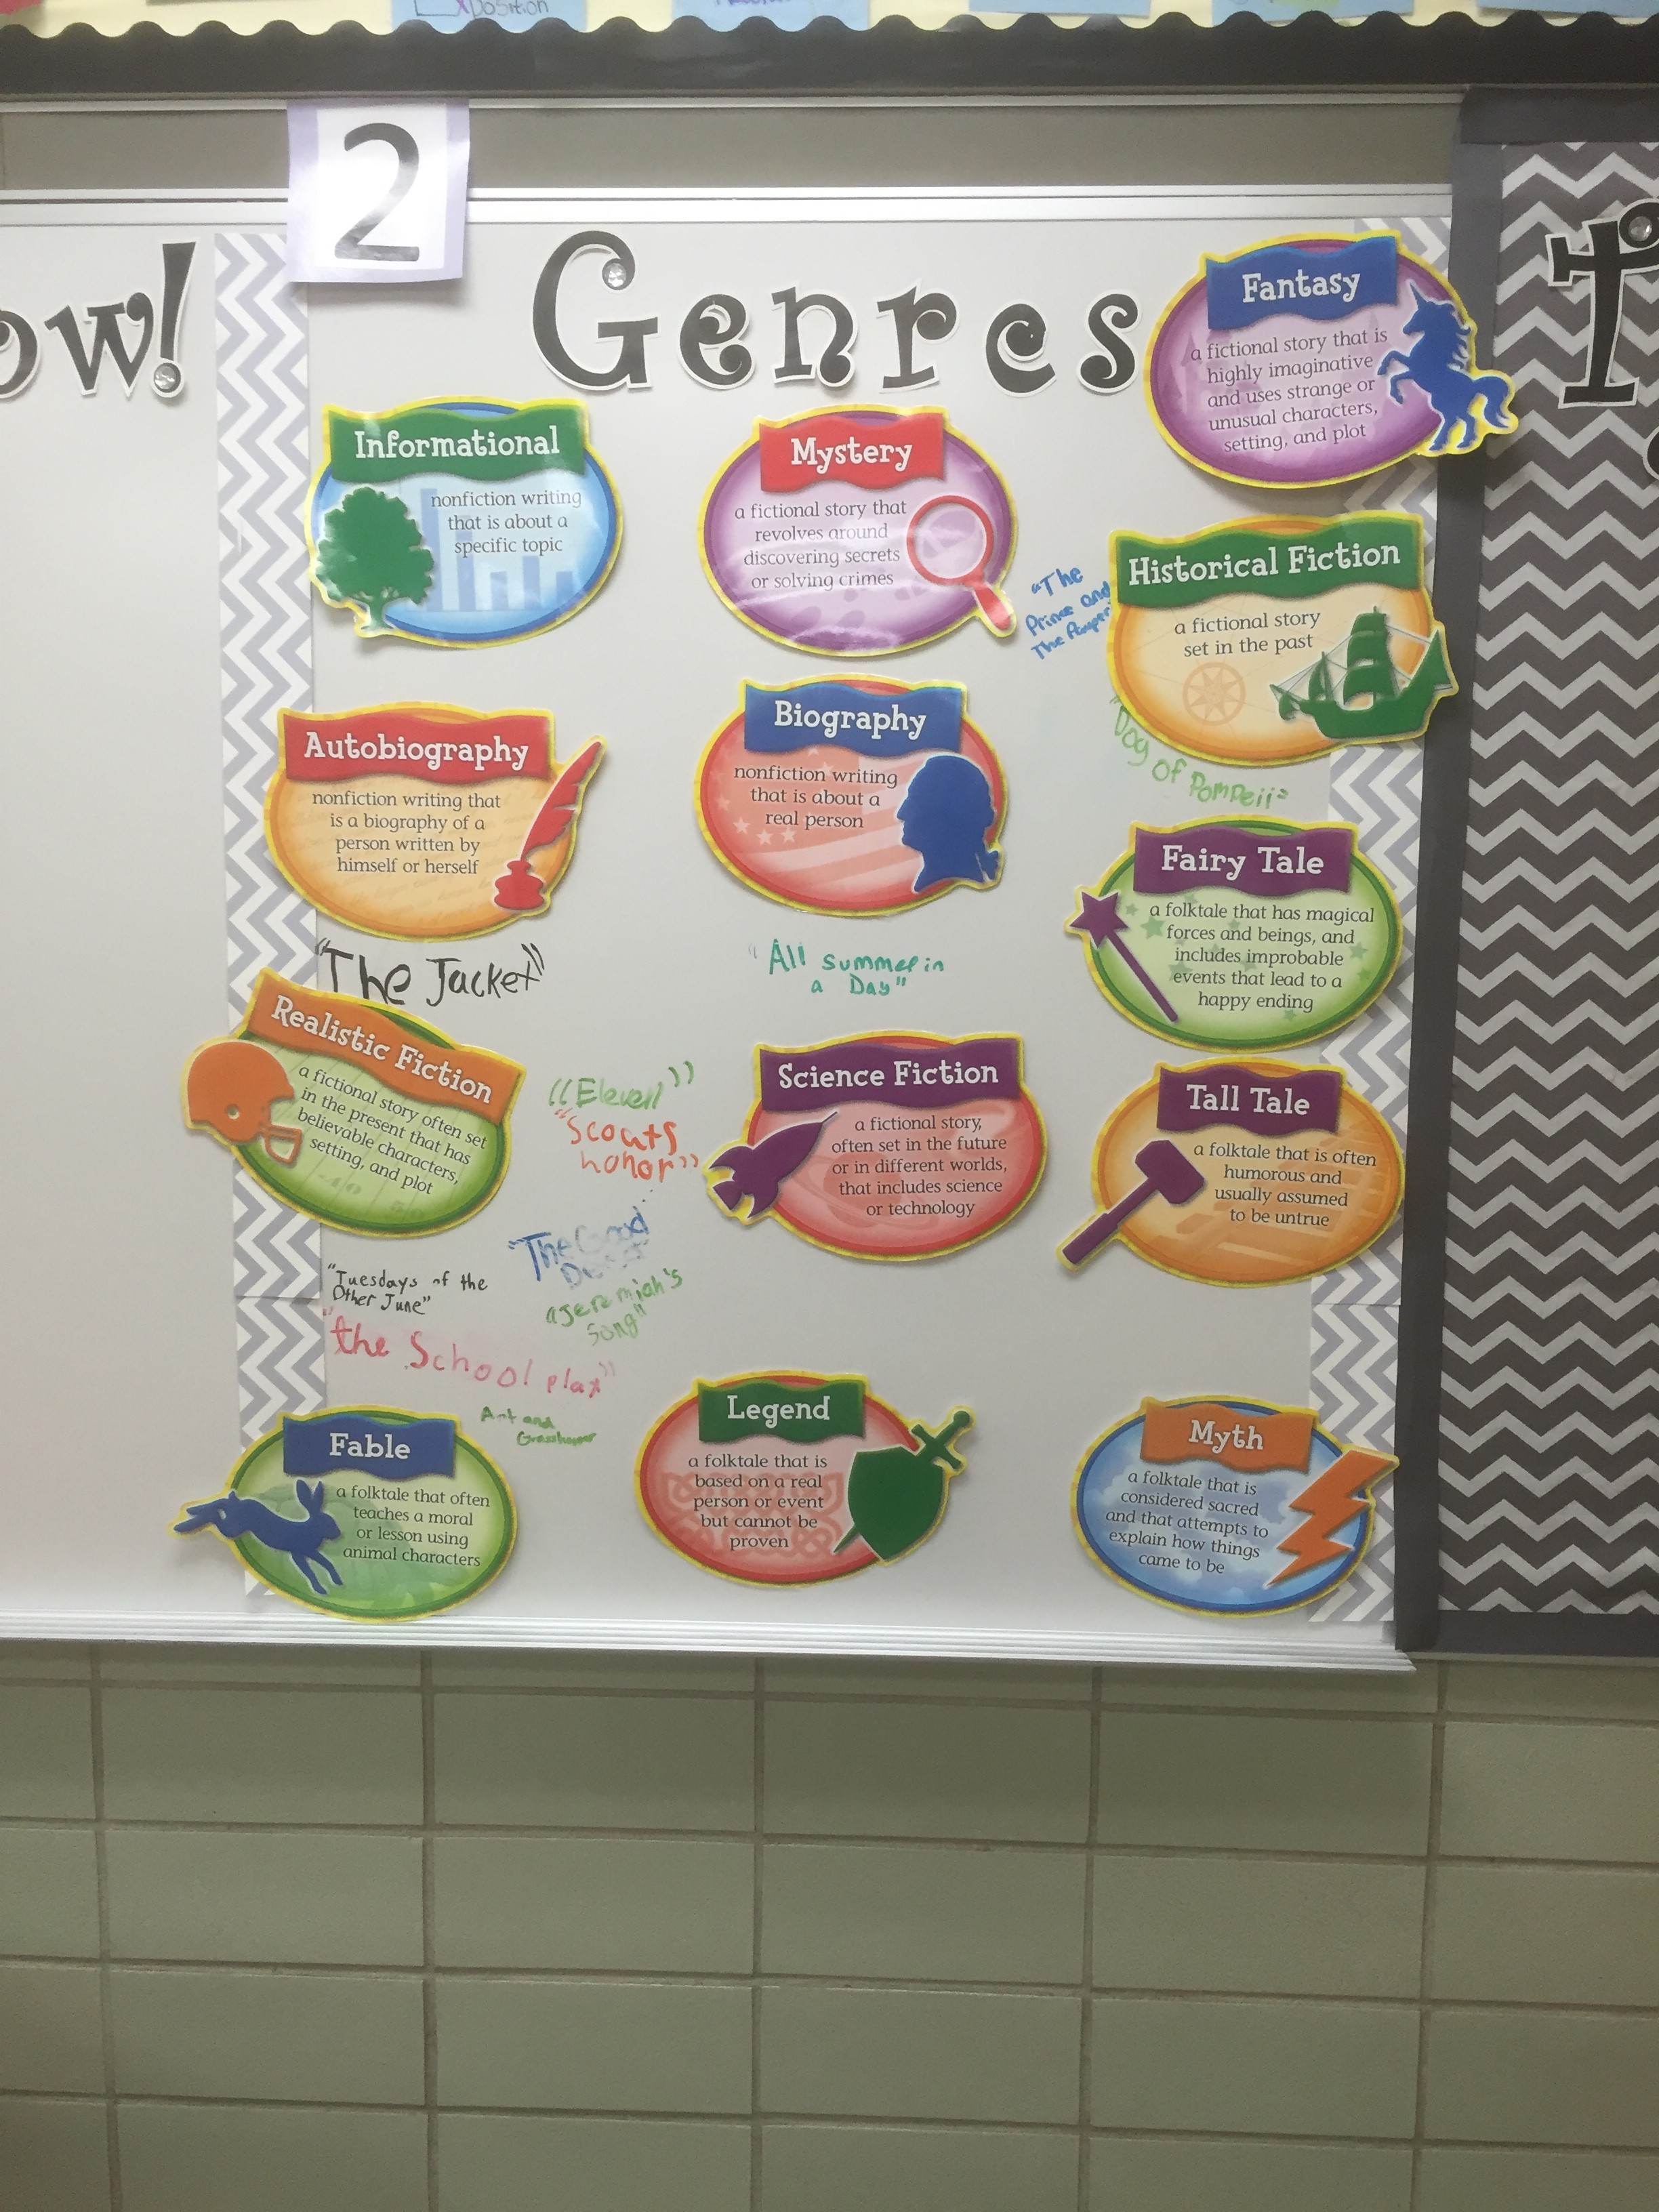 xposition
2
ow!
Genres
Fantasy
a fictional story that is
highly imaginative
and uses strange or
unusual characters,
setting, and plot
Informational
nonfiction writing
that is about a
specific topic
Mystery
a fictional story that
revolves around
discovering secrets
or solving crimes
"The
Prince and
The Pauper"
Historical Fiction
a fictional story
set in the past
"Dog of Pompeii"
Autobiography
nonfiction writing that
is a biography of a
person written by
himself or herself
Biography
nonfiction writing
that is about a
real person
Fairy Tale
a folktale that has magical
forces and beings, and
includes improbable
events that lead to a
happy ending
"The Jacket"
"All summer in
a Day"
Realistic Fiction
a fictional story often set
in the present that has
believable characters,
setting, and plot
"Eleven"
"Scouts
honor"
"The Good
"Jeremiah's
Song"
"Tuesdays of the
Other June"
"the School play"
Science Fiction
a fictional story,
often set in the future
or in different worlds,
that includes science
or technology
Tall Tale
a folktale that is often
humorous and
usually assumed
to be untrue
Ant and
Grasshopper
Fable
a folktale that often
teaches a moral
or lesson using
animal characters
Legend
a folktale that is
based on a real
person or event
but cannot be
proven
Myth
a folktale that is
considered sacred
and that attempts to
explain how things
came to be